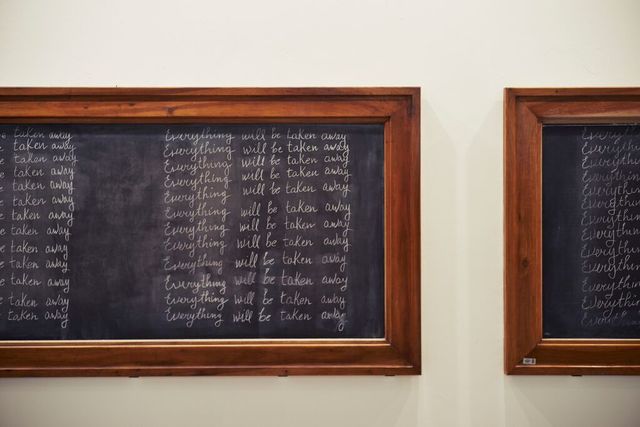 taken away
taken away
taken away
taken away
taken away
taken away
taken away
taken away
taken away
taken away
taken away
taken away
taken away
Everything will be taken away
Everything will be taken away
Everything will be taken away
Everything will be taken away
Everything will be taken away
Everything will be taken away
Everything will be taken away
Everything will be taken away
Everything will be taken away
Everything will be taken away
Everything will be taken away
Everything will be taken away
Everything
Everything
Everything
Everything
Everything
Everything
Everything
Everything
Everything
Everything
Everything
Everything
Everything